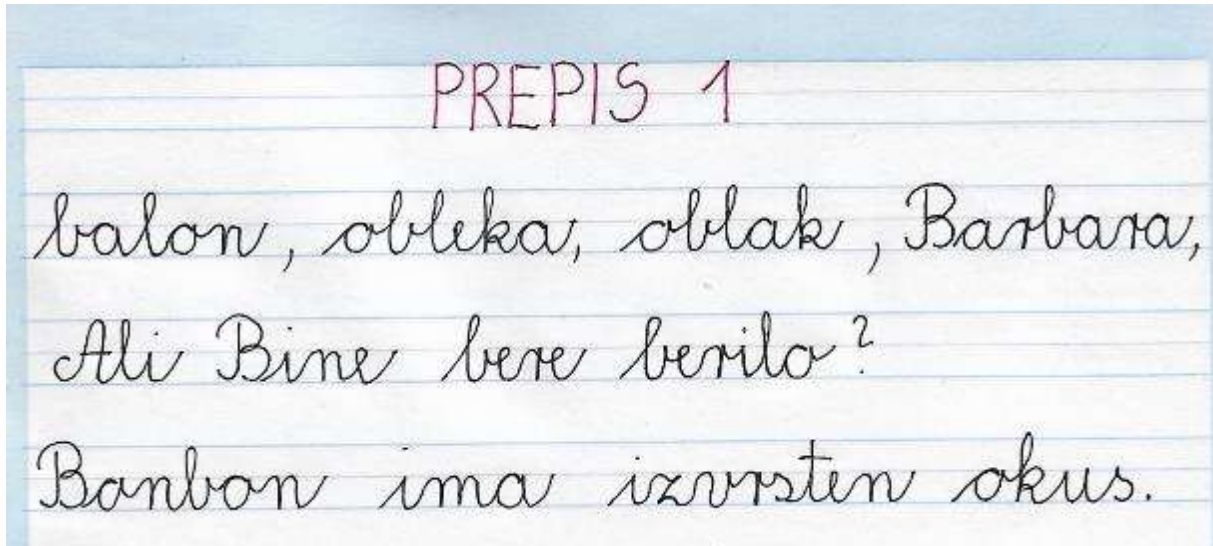 PREPIS 1
balon, obleka, oblak, Barbara,
Ali Bine bere berilo?
Bonbon ima izvrsten okus.